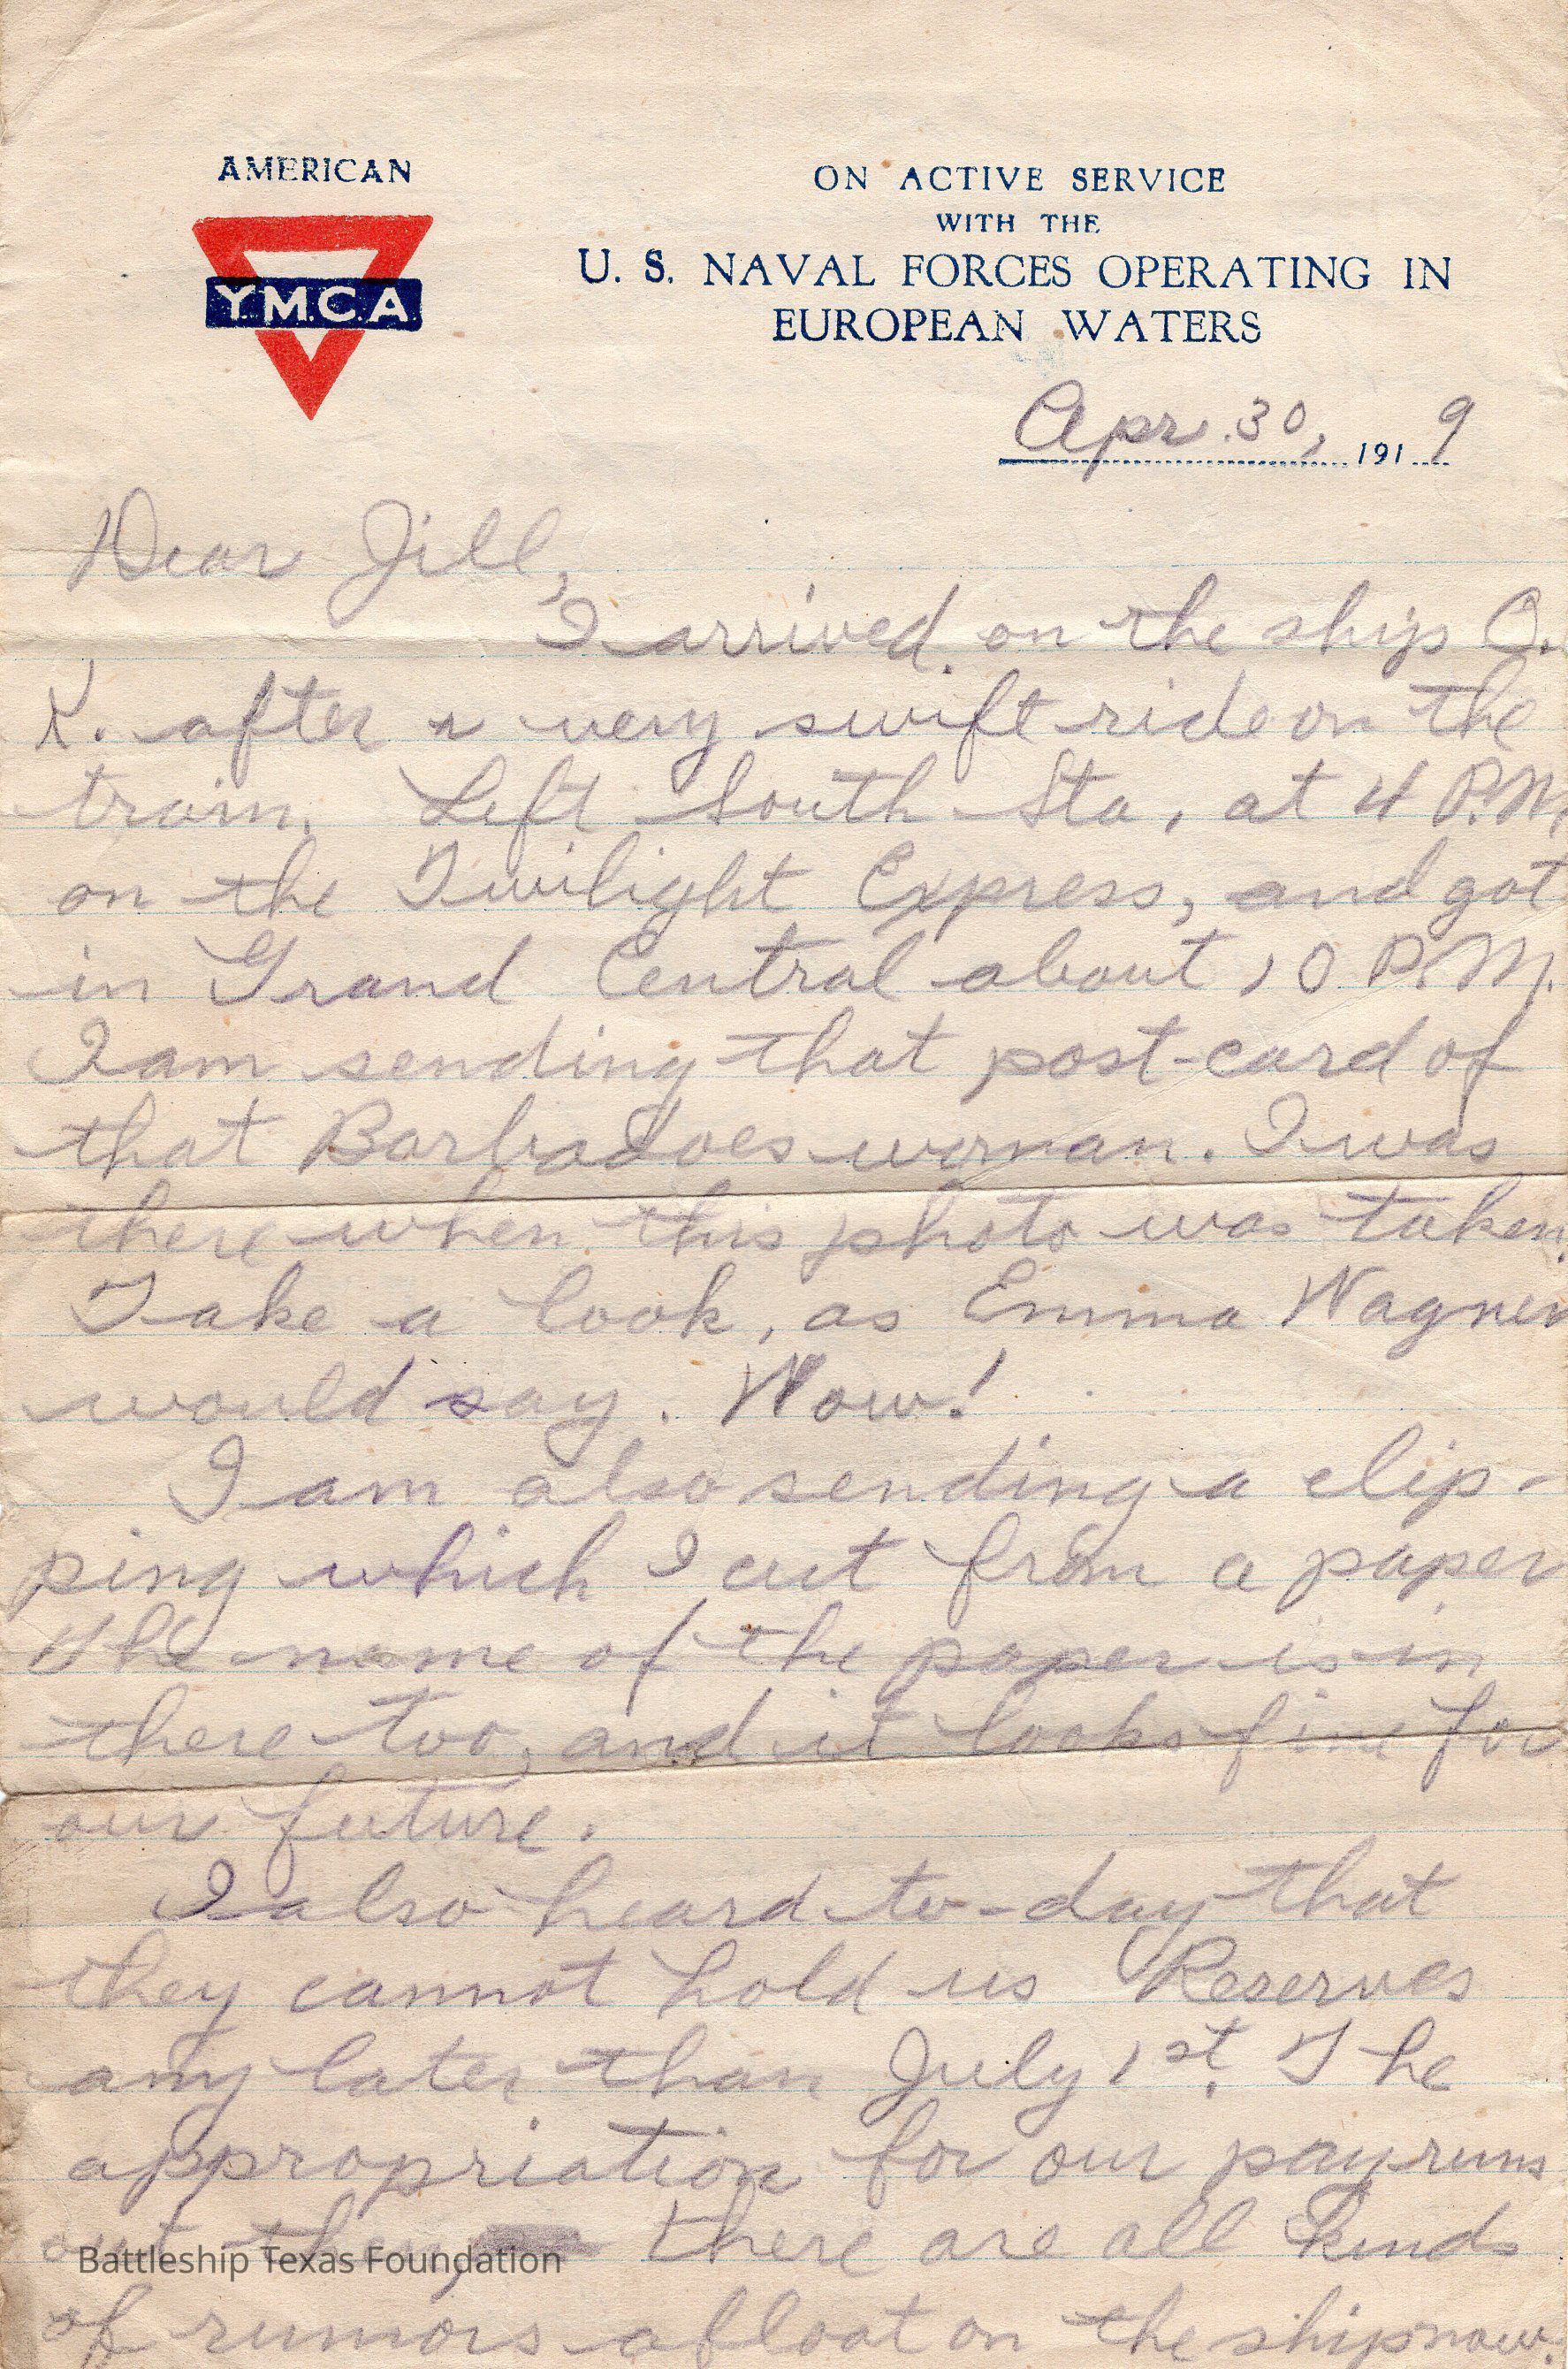 AMERICAN
Y.M.C.A.
ON ACTIVE SERVICE
WITH THE
U. S. NAVAL FORCES OPERATING IN
EUROPEAN WATERS
Apr. 30, 1919
Dear Jill,
I arrived on the ship O.
K. after a very swift ride on the
train. Left South Sta, at 4 P.M.
on the Twilight Express, and got
in Grand Central about 10 P.M.
I am sending that post-card of
that Barbadoes woman. I was
there when this photo was taken.
Take a look, as Emma Wagner
would say. Wow!
I am also sending a clip-
ping which I cut from a paper
The name of the paper is in
there too, and it looks fine for
our future.
I also heard to-day that
they cannot hold us Reserves
any later than July 1st. The
appropriation for our pay runs
out then, there are all kinds
of rumors afloat on the ship now.
Battleship Texas Foundation